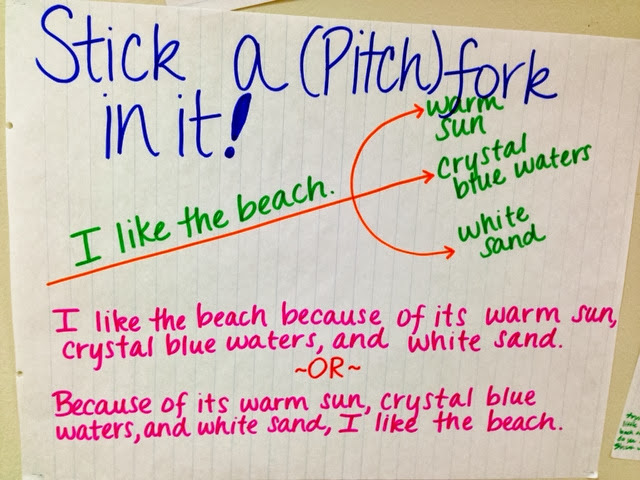 Stick a (Pitch)fork
in it!
warm
sun
crystal
blue waters
I like the beach.
white
sand
I like the beach because of its warm sun,
crystal blue waters, and white sand.
~OR~
Because of its warm sun, crystal blue
waters, and white sand, I like the beach.